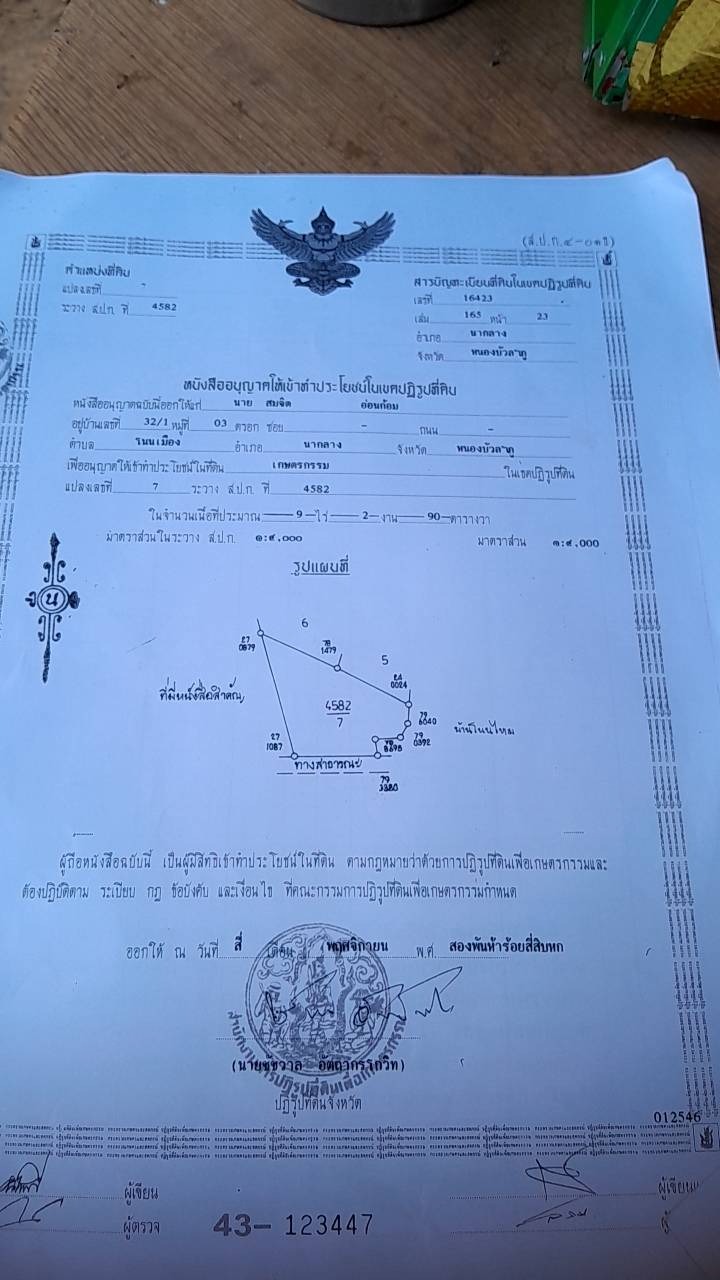 (ส.ป.ก.๔-๐๑ข)
ตำแหน่งที่ดิน
แปลงเลขที่ -
ระวาง ส.ป.ก. ที่ 4582
สารบัญทะเบียนที่ดินในเขตปฏิรูปที่ดิน
เลขที่ 16423
เล่ม 165 หน้า 23
อำเภอ นากลาง
จังหวัด หนองบัวลำภู
หนังสืออนุญาตให้เข้าทำประโยชน์ในเขตปฏิรูปที่ดิน
หนังสืออนุญาตฉบับนี้ออกให้แก่ นาย สมจิต อ่อนก้อม
อยู่บ้านเลขที่ 32/1 หมู่ที่ 03 ตรอก ซอย - ถนน -
ตำบล โนนเมือง อำเภอ นากลาง จังหวัด หนองบัวลำภู
เพื่ออนุญาตให้เข้าทำประโยชน์ในที่ดิน เกษตรกรรม ในเขตปฏิรูปที่ดิน
แปลงเลขที่ 7 ระวาง ส.ป.ก. ที่ 4582
ในจำนวนเนื้อที่ประมาณ 9 ไร่ 2 งาน 90 ตารางวา
มาตราส่วนในระวาง ส.ป.ก. ๑:๔,000 มาตราส่วน ๑:๔,000
รูปแผนที่
น
6
27
0879
78
1479
5
24
0024
ที่มีหนังสือสำคัญ
4582
7
79
6040
บ้านโนนไหม
79
0392
27
1087
ทางสาธารณะ
79
3380
ผู้ถือหนังสือฉบับนี้ เป็นผู้มีสิทธิเข้าทำประโยชน์ในที่ดิน ตามกฎหมายว่าด้วยการปฏิรูปที่ดินเพื่อเกษตรกรรมและ
ต้องปฏิบัติตาม ระเบียบ กฎ ข้อบังคับ และเงื่อนไข ที่คณะกรรมการปฏิรูปที่ดินเพื่อเกษตรกรรมกำหนด
ออกให้ ณ วันที่ สี่ เดือน พฤศจิกายน พ.ศ. สองพันห้าร้อยสี่สิบหก
สำนักงานการปฏิรูปที่ดินเพื่อเกษตรกรรม
(นายชัชวาล อัตถากรโกวิท)
ปฏิรูปที่ดินจังหวัด
012546
ผู้เขียน
ผู้เขียน
ผู้ตรวจ
43- 123447